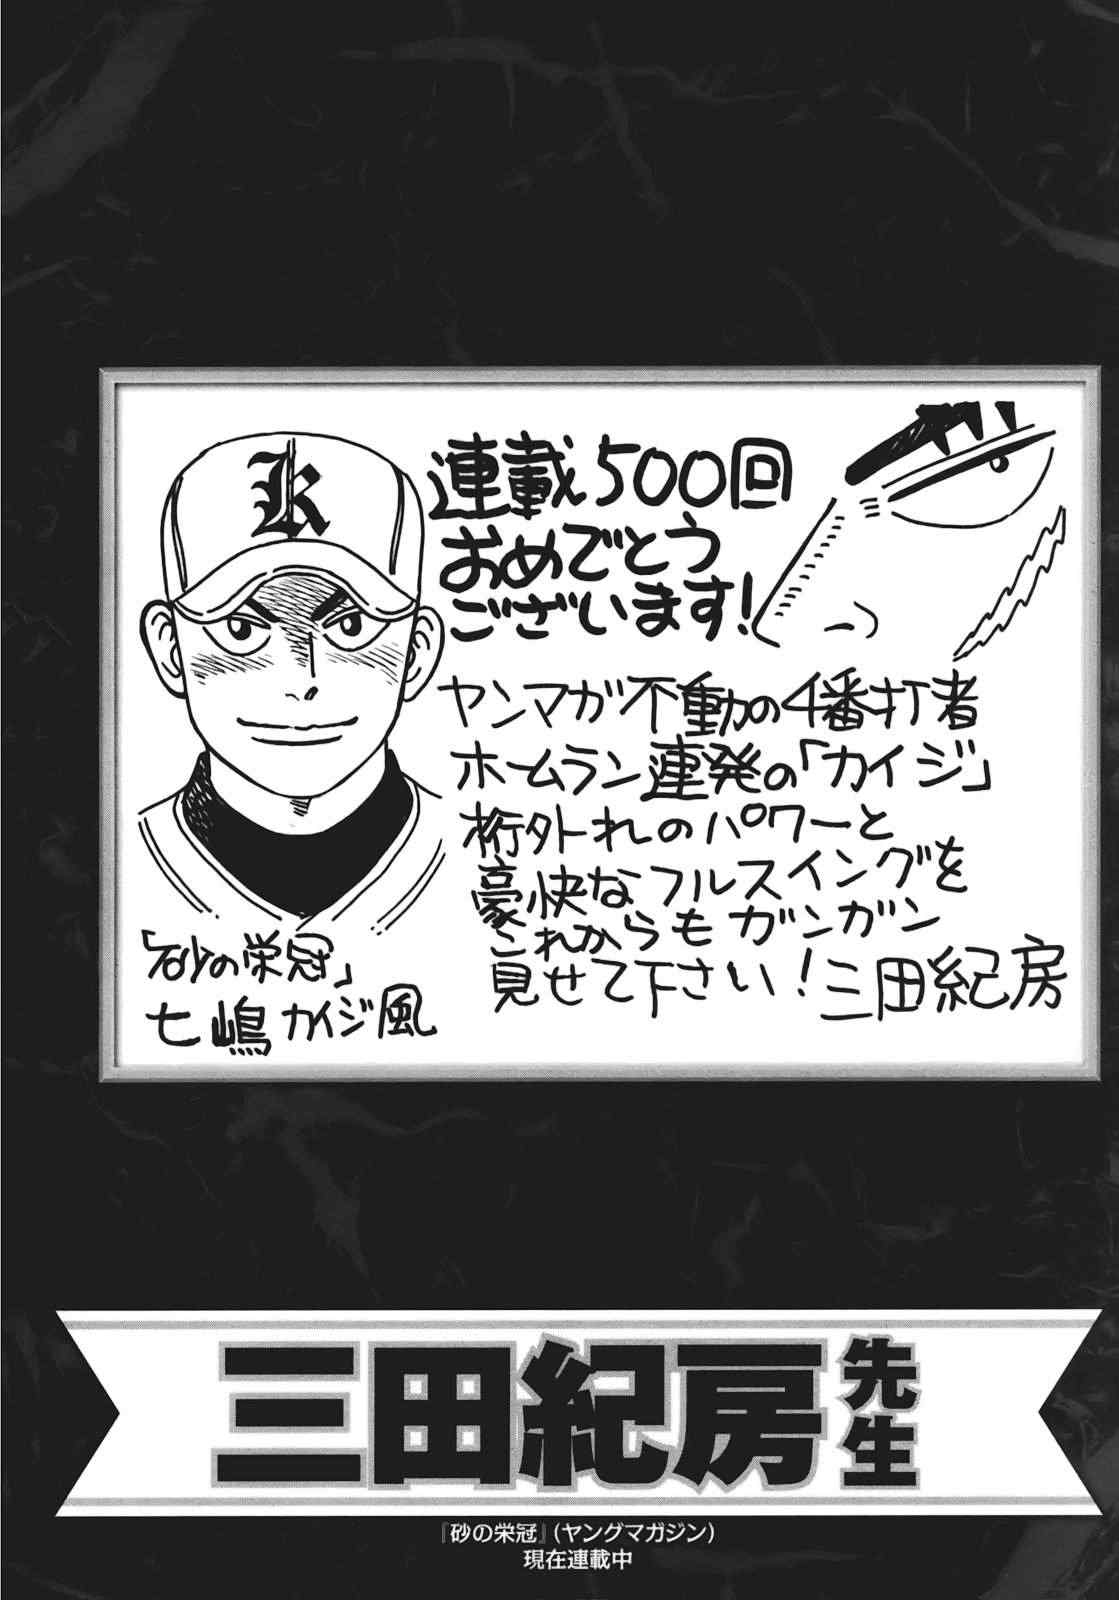 K
連載500回
おめでとう
ございます!
ヤンマガ不動の4番打者
ホームラン連発の「カイジ」
桁外れのパワーと
豪快なフルスイングを
これからもガンガン
見せて下さい!三田紀房
「砂の栄冠」
七嶋カイジ風
三田紀房先生
『砂の栄冠』(ヤングマガジン)
現在連載中